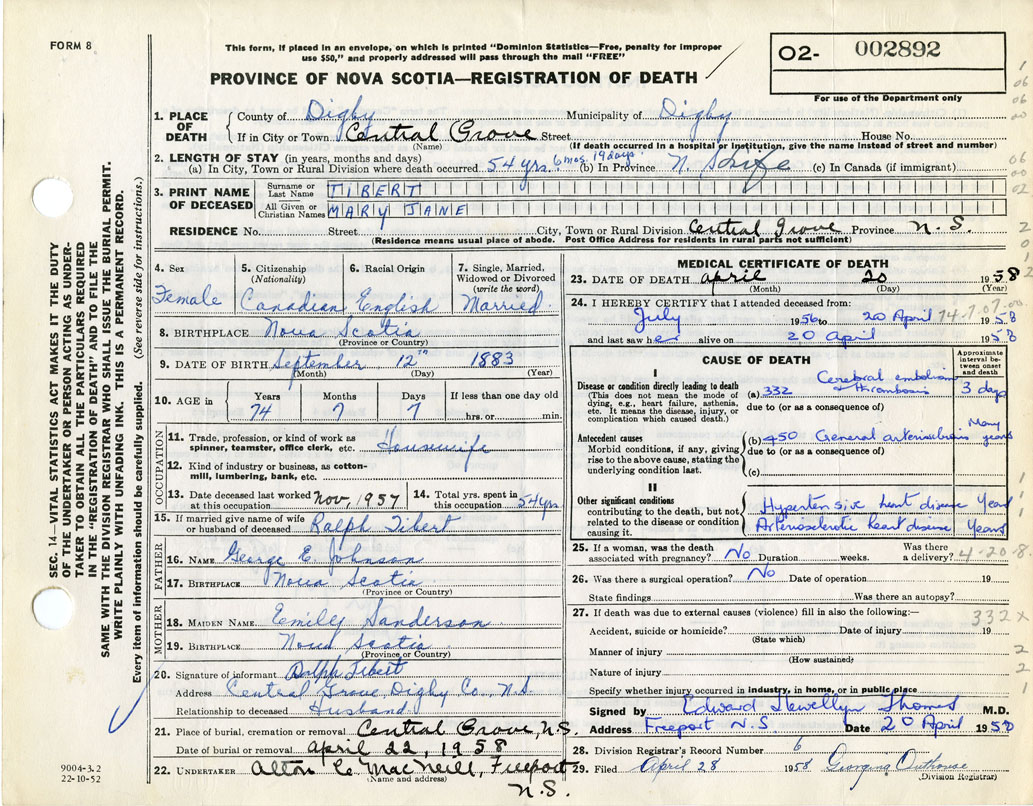 FORM 8
This form, if placed in an envelope, on which is printed "Dominion Statistics—Free, penalty for improper
use $50," and properly addressed will pass through the mail "FREE"
PROVINCE OF NOVA SCOTIA—REGISTRATION OF DEATH
O2- 002892
For use of the Department only
SEC. 14—VITAL STATISTICS ACT MAKES IT THE DUTY
OF THE UNDERTAKER OR PERSON ACTING AS UNDER-
TAKER TO OBTAIN ALL THE PARTICULARS REQUIRED
IN THE "REGISTRATION OF DEATH" AND TO FILE THE
SAME WITH THE DIVISION REGISTRAR WHO SHALL ISSUE THE BURIAL PERMIT.
WRITE PLAINLY WITH UNFADING INK. THIS IS A PERMANENT RECORD.
Every item of information should be carefully supplied. (See reverse side for instructions.)
1. PLACE OF DEATH County of Digby Municipality of Digby
If in City or Town Central Grove Street House No.
(Name) (If death occurred in a hospital or institution, give the name instead of street and number)
2. LENGTH OF STAY (in years, months and days)
(a) In City, Town or Rural Division where death occurred 54 yrs. 6 mos. 19 days. (b) In Province N. S. life (c) In Canada (if immigrant)
3. PRINT NAME OF DECEASED Surname or Last Name TIBERT
All Given or Christian Names MARY JANE
RESIDENCE No. Street City, Town or Rural Division Central Grove Province N. S.
(Residence means usual place of abode. Post Office Address for residents in rural parts not sufficient)
4. Sex Female
5. Citizenship (Nationality) Canadian
6. Racial Origin English
7. Single, Married, Widowed or Divorced (write the word) Married
8. BIRTHPLACE Nova Scotia
(Province or Country)
9. DATE OF BIRTH September 12th 1883
(Month) (Day) (Year)
10. AGE in Years 74 Months 7 Days 7 If less than one day old hrs. or min.
OCCUPATION
11. Trade, profession, or kind of work as spinner, teamster, office clerk, etc. Housewife
12. Kind of industry or business, as cotton-mill, lumbering, bank, etc.
13. Date deceased last worked at this occupation Nov, 1957
14. Total yrs. spent in this occupation 54 yrs.
15. If married give name of wife or husband of deceased Ralph Tibert
FATHER
16. NAME George E. Johnson
17. BIRTHPLACE Nova Scotia
(Province or Country)
MOTHER
18. MAIDEN NAME Emily Sanderson
19. BIRTHPLACE Nova Scotia
(Province or Country)
20. Signature of informant Ralph Tibert
Address Central Grove, Digby Co., N.S.
Relationship to deceased Husband
21. Place of burial, cremation or removal Central Grove, N.S.
Date of burial or removal April 22, 1958
22. UNDERTAKER Alton C. MacNeill, Freeport N.S.
(Name and address)
9004-3.2
22-10-52
MEDICAL CERTIFICATE OF DEATH
23. DATE OF DEATH April 20 1958
(Month) (Day) (Year)
24. I HEREBY CERTIFY that I attended deceased from:
July 1956 to 20 April 1958
74-7.07-00
and last saw her alive on 20 April 1958
CAUSE OF DEATH
Approximate interval between onset and death
I
Disease or condition directly leading to death
(This does not mean the mode of dying, e.g., heart failure, asthenia, etc. It means the disease, injury, or complication which caused death.)
(a) 332 Cerebral embolism thrombosis 3 days
due to (or as a consequence of)
Antecedent causes
Morbid conditions, if any, giving rise to the above cause, stating the underlying condition last.
(b) 450 General arteriosclerosis Many years
due to (or as a consequence of)
(c)
II
Other significant conditions
contributing to the death, but not related to the disease or condition causing it.
Hypertensive heart disease Years
Arteriosclerotic heart disease Years
25. If a woman, was the death associated with pregnancy? No Duration weeks. Was there a delivery?
4-20-8
26. Was there a surgical operation? No Date of operation 19
State findings Was there an autopsy?
27. If death was due to external causes (violence) fill in also the following:—
332 X
Accident, suicide or homicide? Date of injury 19
(State which)
Manner of injury
(How sustained)
Nature of injury
Specify whether injury occurred in industry, in home, or in public place
Signed by Edward Llewellyn Thomas M.D.
Address Freeport N.S Date 20 April 1958
28. Division Registrar's Record Number 6
29. Filed April 28 1958 Georgina Outhouse
(Division Registrar)